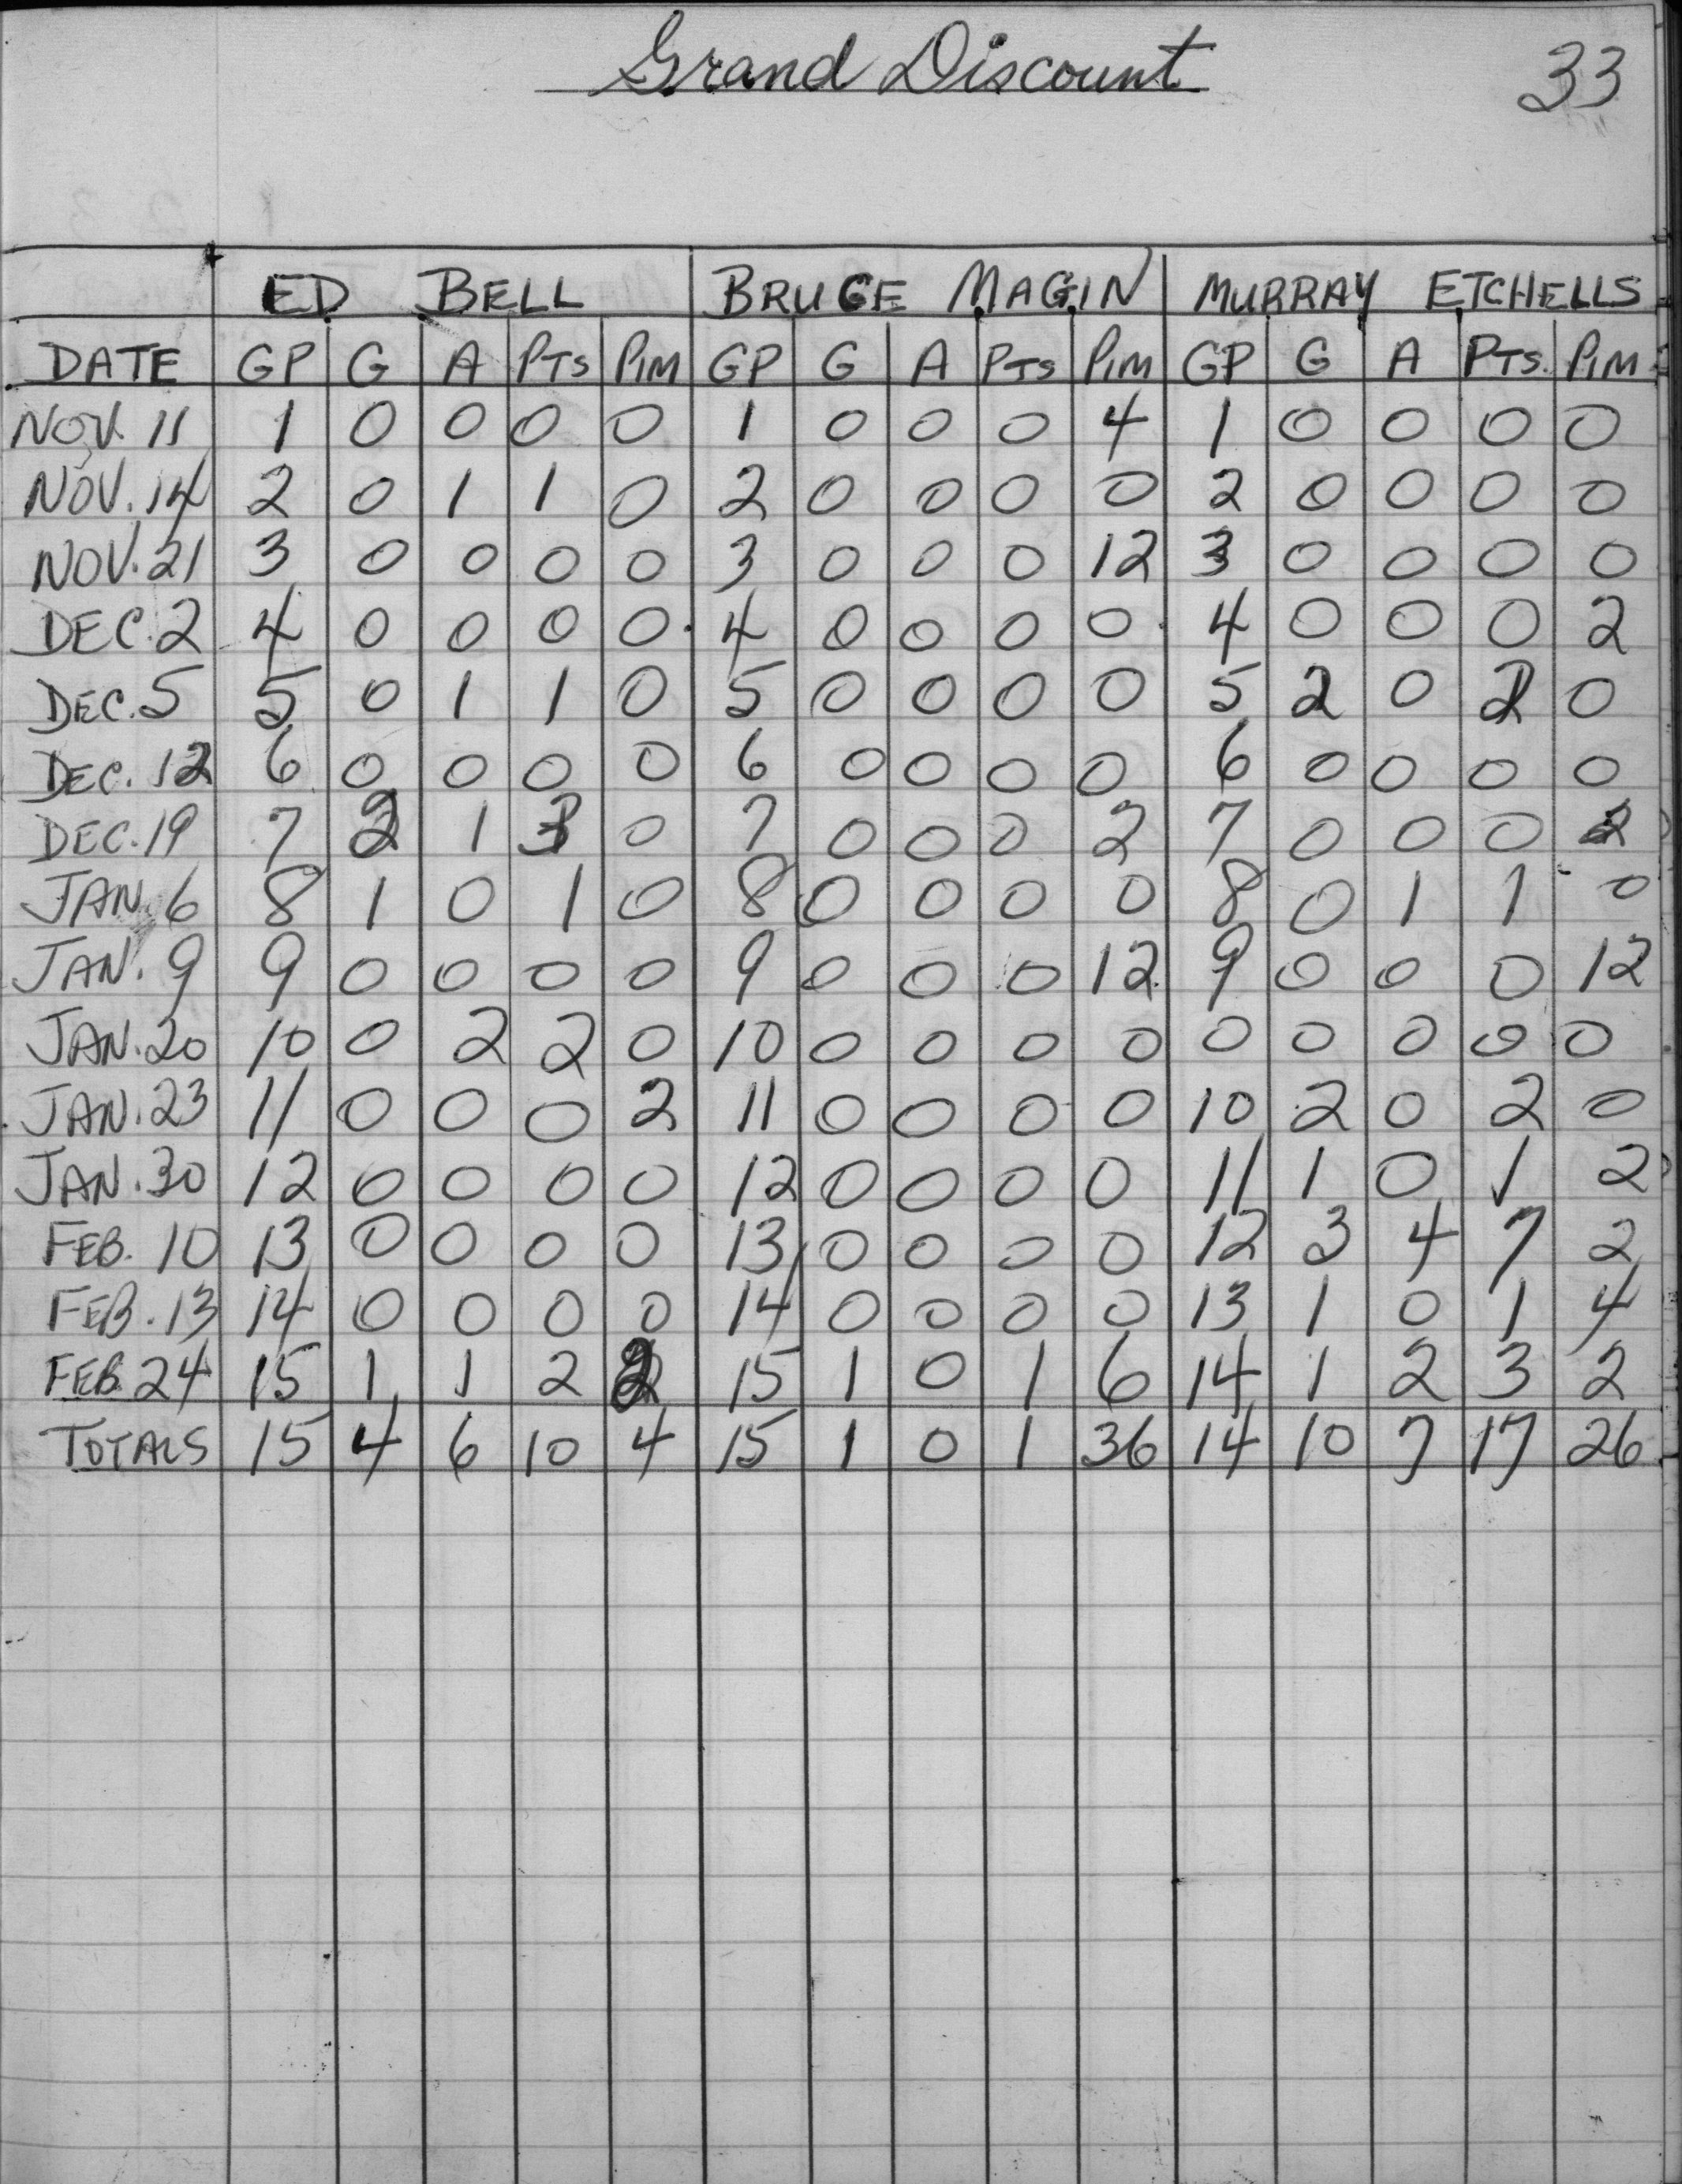 Grand Discount 33
ED BELL BRUCE MAGIN MURRAY ETCHELLS
DATE GP G A PTS PIM GP G A PTS PIM GP G A PTS. PIM
NOV. 11 1 0 0 0 0 1 0 0 0 4 1 0 0 0 0
NOV. 14 2 0 1 1 0 2 0 0 0 0 2 0 0 0 0
NOV. 21 3 0 0 0 0 3 0 0 0 12 3 0 0 0 0
DEC. 2 4 0 0 0 0 4 0 0 0 0 4 0 0 0 2
DEC. 5 5 0 1 1 0 5 0 0 0 0 5 2 0 2 0
DEC. 12 6 0 0 0 0 6 0 0 0 0 6 0 0 0 0
DEC. 19 7 2 1 3 0 7 0 0 0 2 7 0 0 0 2
JAN. 6 8 1 0 1 0 8 0 0 0 0 8 0 1 1 0
JAN. 9 9 0 0 0 0 9 0 0 0 12 9 0 0 0 12
JAN. 20 10 0 2 2 0 10 0 0 0 0 0 0 0 0 0
JAN. 23 11 0 0 0 2 11 0 0 0 0 10 2 0 2 0
JAN. 30 12 0 0 0 0 12 0 0 0 0 11 1 0 1 2
FEB. 10 13 0 0 0 0 13 0 0 0 0 12 3 4 7 2
FEB. 13 14 0 0 0 0 14 0 0 0 0 13 1 0 1 4
FEB. 24 15 1 1 2 2 15 1 0 1 6 14 1 2 3 2
TOTALS 15 4 6 10 4 15 1 0 1 36 14 10 7 17 26